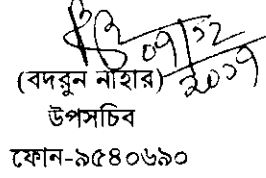 ০৭/১২
২০১৭
(বদরুন নাহার)
উপসচিব
ফোন-৯৫৪০৬৯০